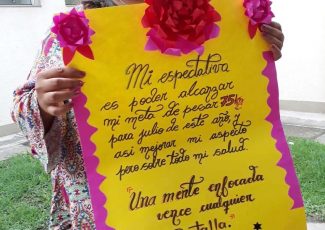 Mi espectativa
es poder alcanzar
mi meta de pesar 75kg
para julio de este año, y
asi mejorar mi aspecto
pero sobre todo mi salud.
"Una mente enfocada
vence cualquier
talla."